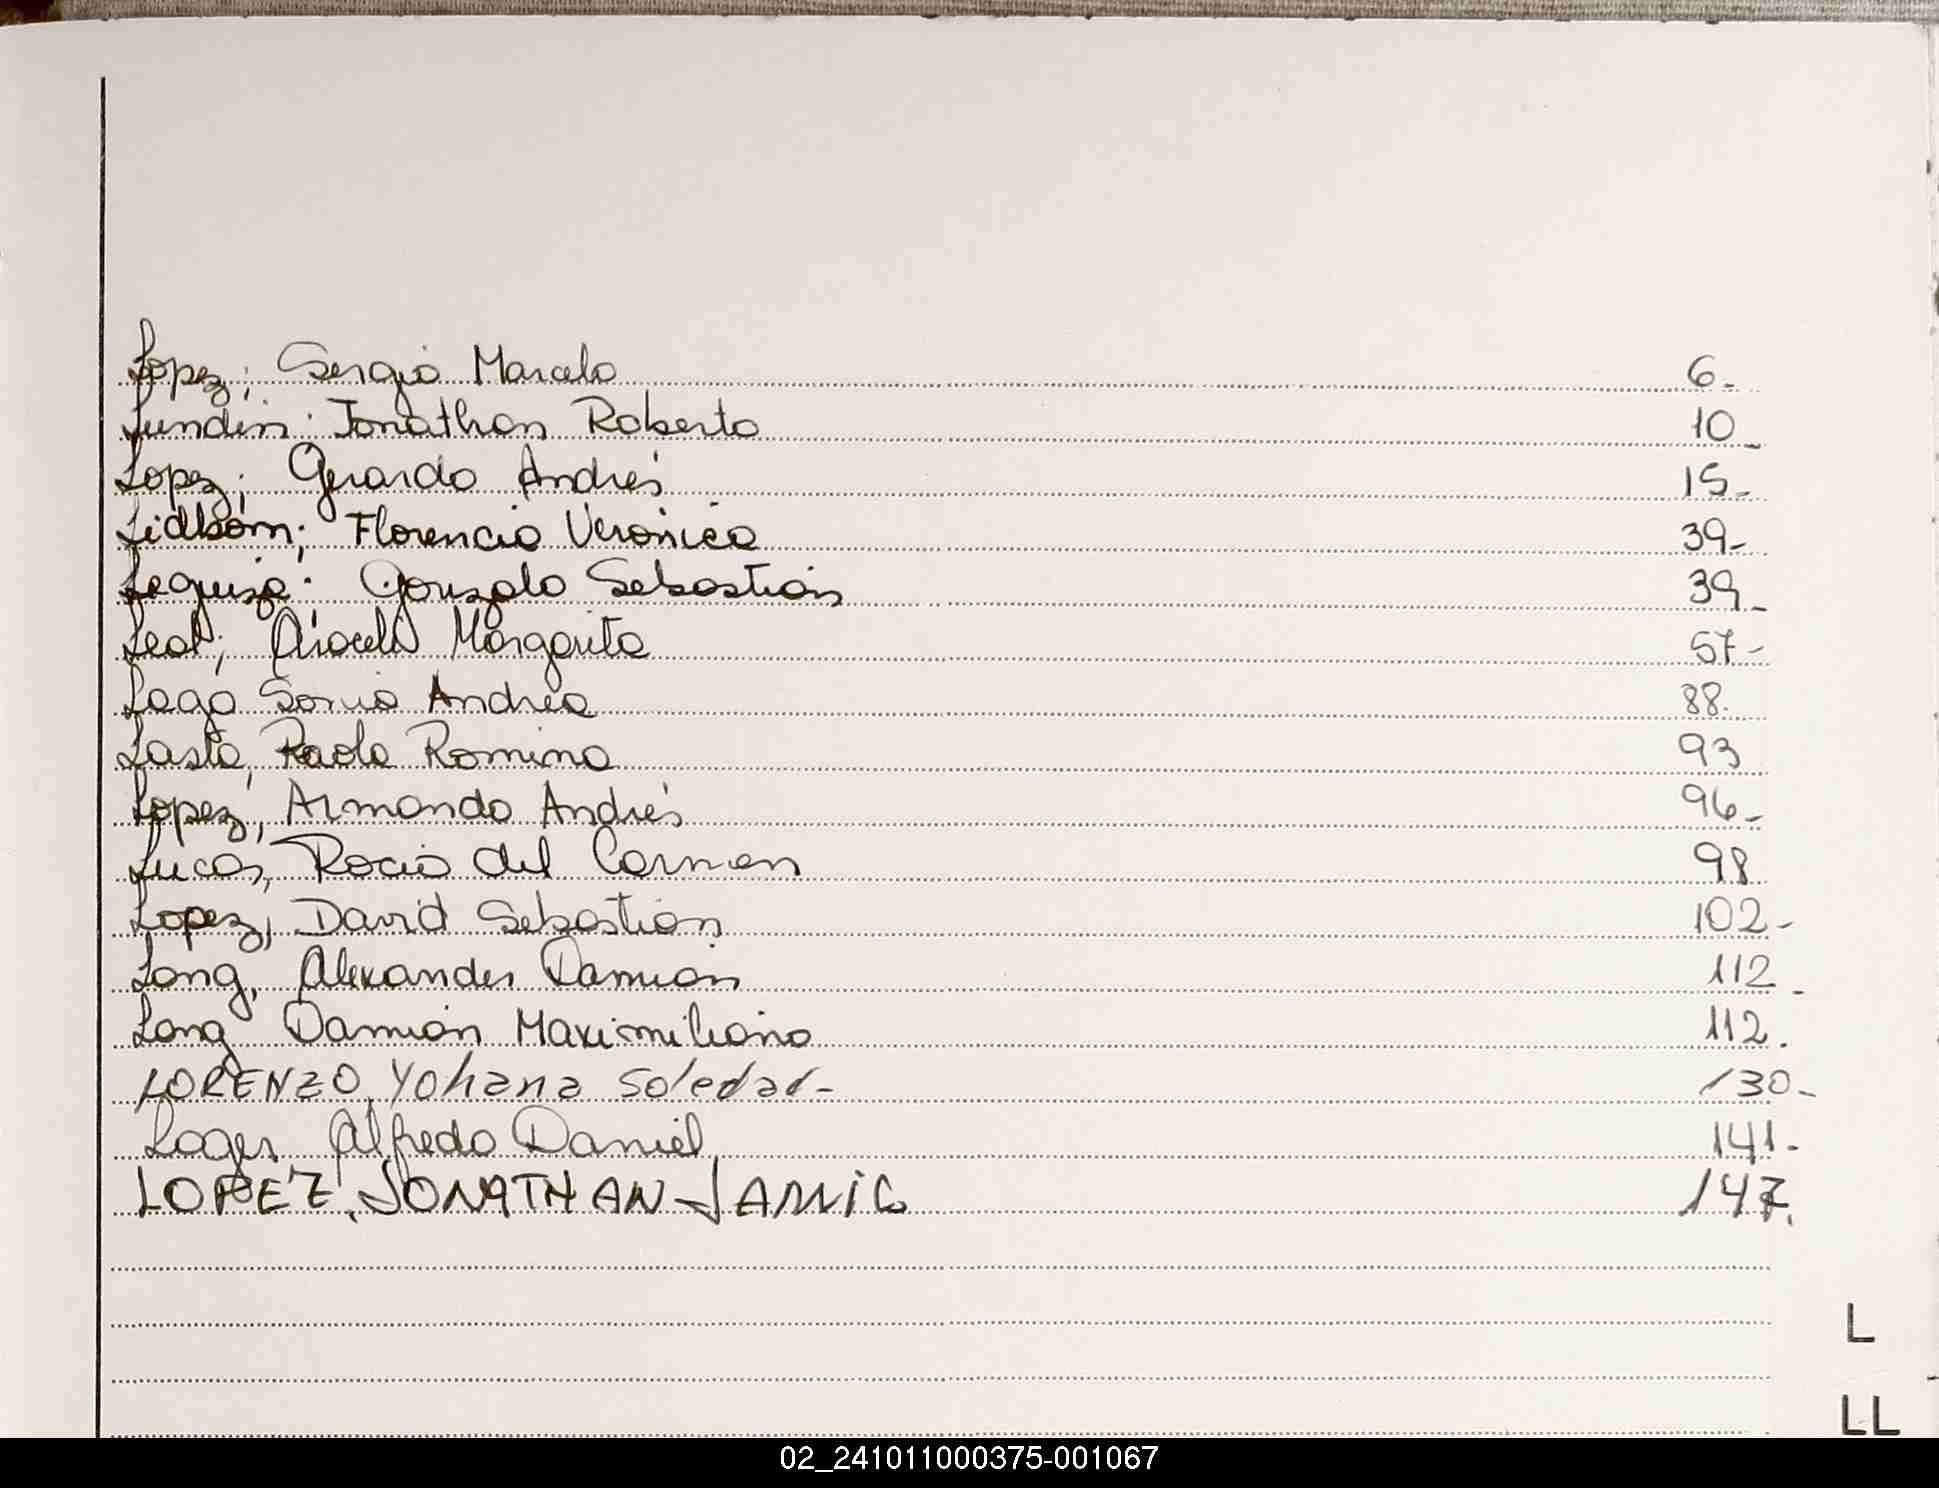 Lopez; Sergio Marcelo 6-
Lundin; Jonathan Roberto 10-
Lopez; Gerardo Andrés 15-
Lidbom; Florencia Verónica 39-
Leguiza; Gonzalo Sebastián 39-
Leal; Araceli Margarita 57-
Lago Sonia Andrea 88.
Lasta, Paola Romina 93
Lopez, Armando Andrés 96-
Lucas, Rocio del Carmen 98
Lopez, David Sebastián 102-
Long, Alexander Damián 112-
Long Damián Maximiliano 112.
LORENZO, Yohana Soledad- 130-
Loger Alfredo Daniel 141-
LOPEZ, JONATHAN 147.
L
LL
02_241011000375-001067